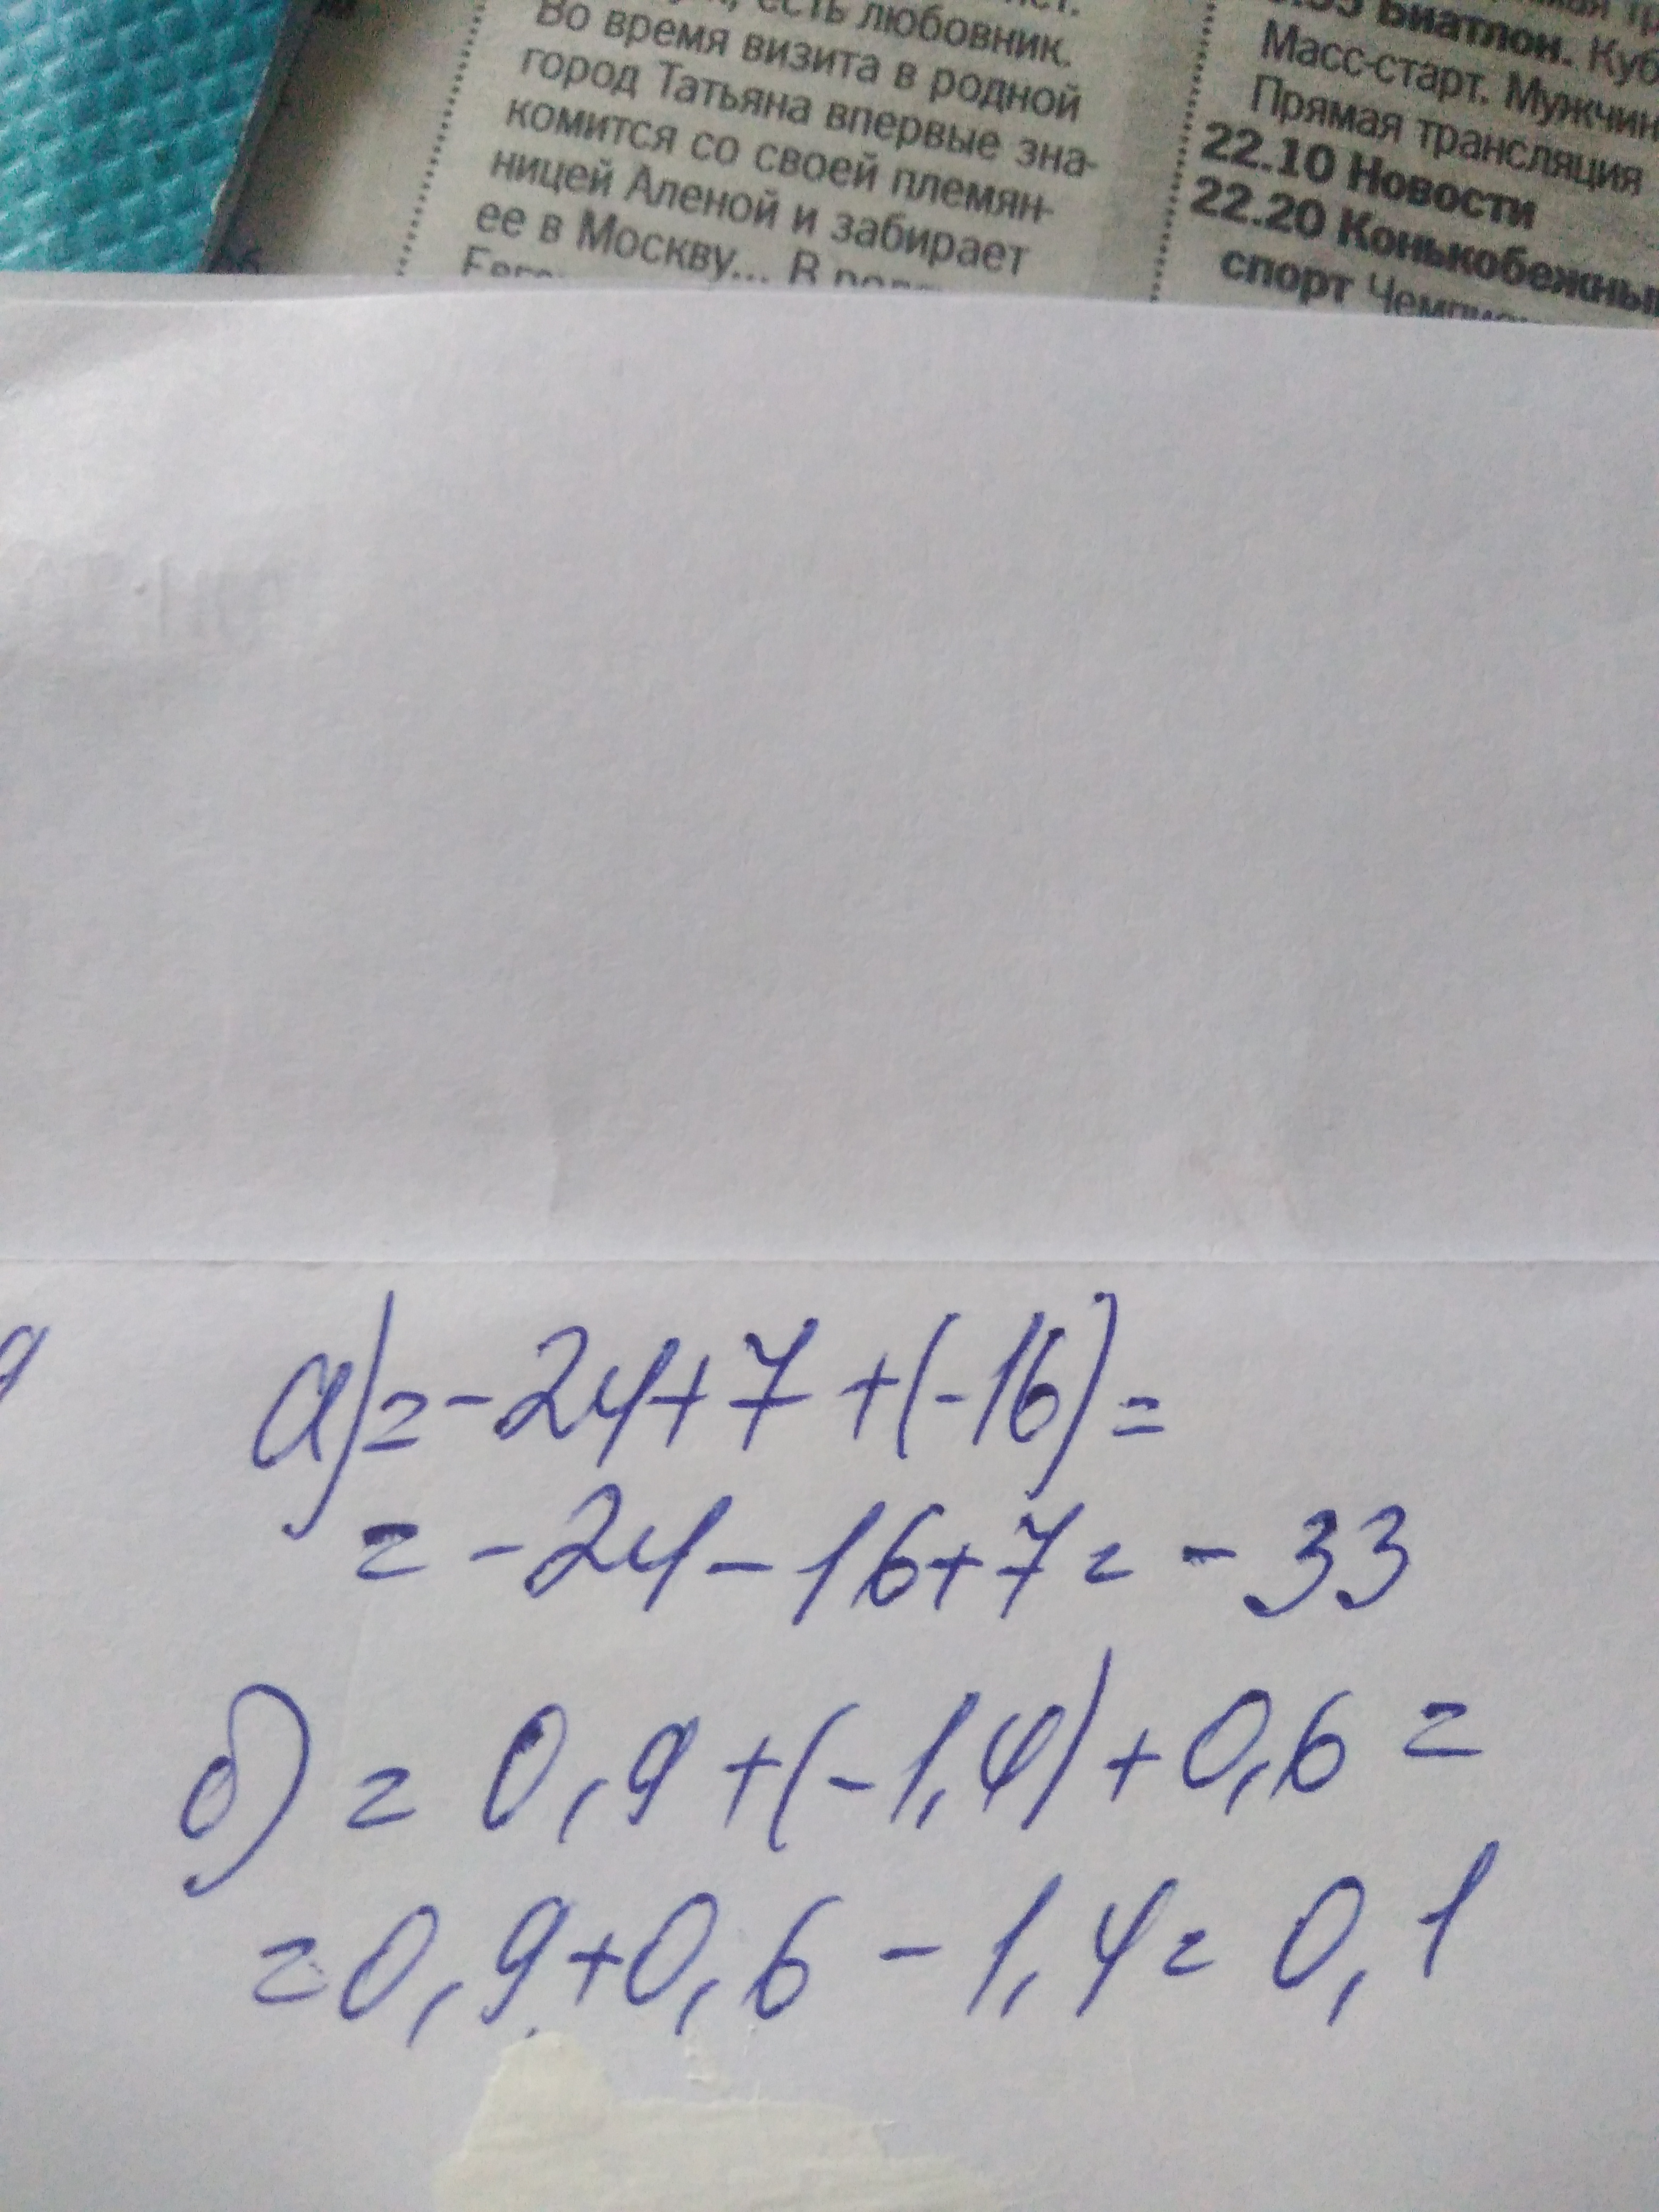 есть любовник.
Во время визита в родной
город Татьяна впервые зна-
комится со своей племян-
ницей Аленой и забирает
ее в Москву... В
Биатлон. Куб
Масс-старт. Мужчин
Прямая трансляция
22.10 Новости
22.20 Конькобежны
спорт Чемпион
а) = -24+7 +(-16) =
= -24-16+7 = -33
б) = 0,9 +(-1,4)+0,6 =
=0,9+0,6 - 1,4 = 0,1